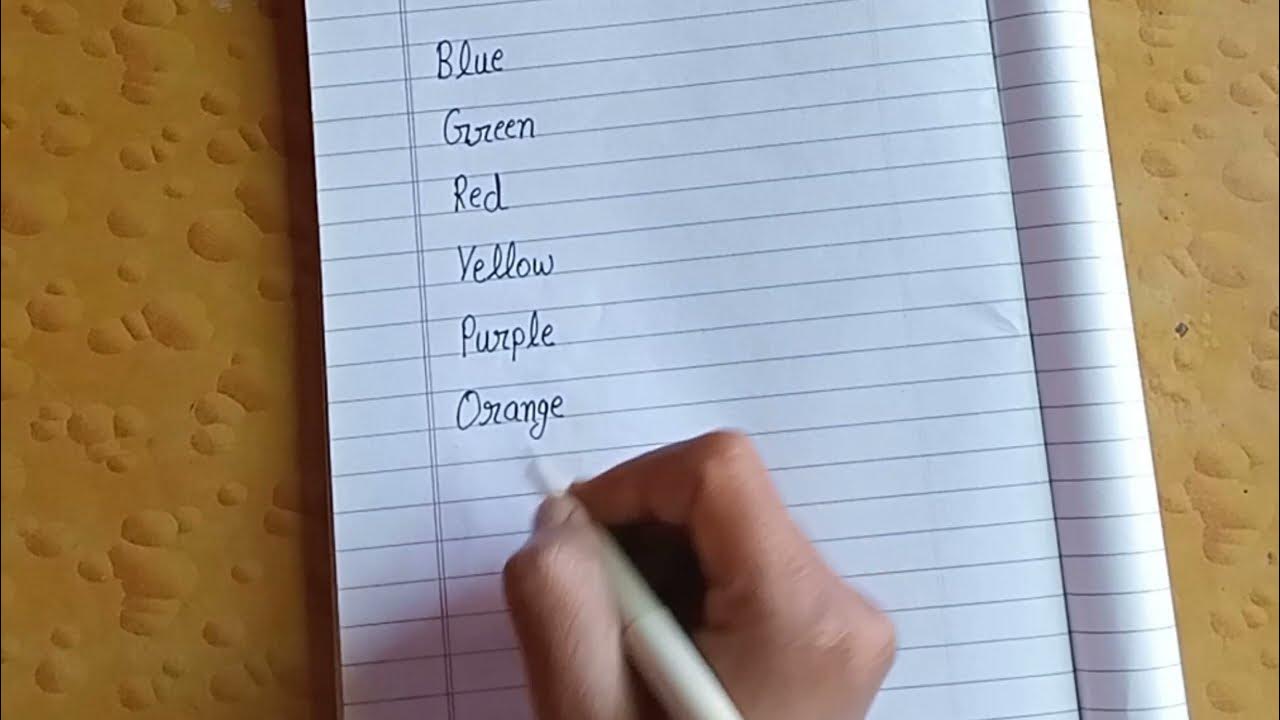 Blue
Green
Red
Yellow
Purple
Orange